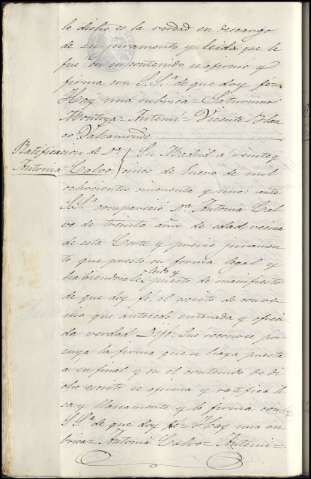 lo dicho es la verdad en descargo
de su juramento y leida que le
fue en su contenido se afirmó y
firma con S.Sª. de que doy fe=
Hay una rubrica= Saturnino
Montoya= Antemi= Vicente Blan-
co Valcarcel=
Ratificacion de Dª.
Antonia Calvo
En Madrid a veinte y
cinco de Enero de mil
ochocientos cincuenta y uno: ante
S.Sª. compareció Dª. Antonia Cal-
vo de treinta años de edad vecina
de esta Corte y previo juramen-
to que prestó en forma legal y
habiendole leido y puesto de manifiesto
de que doy fe, el escrito de
que antecede enterada y ofreci-
da verdad Dijo: Que reconoce por
suya la firma que se haya puesta
a su final y en el contenido de di-
cho escrito se afirma y ratifica li-
sa y llanamente y lo firma con
S.Sª. de que doy fe= Hay una ru-
brica= Antonia Calvo= Antemi=